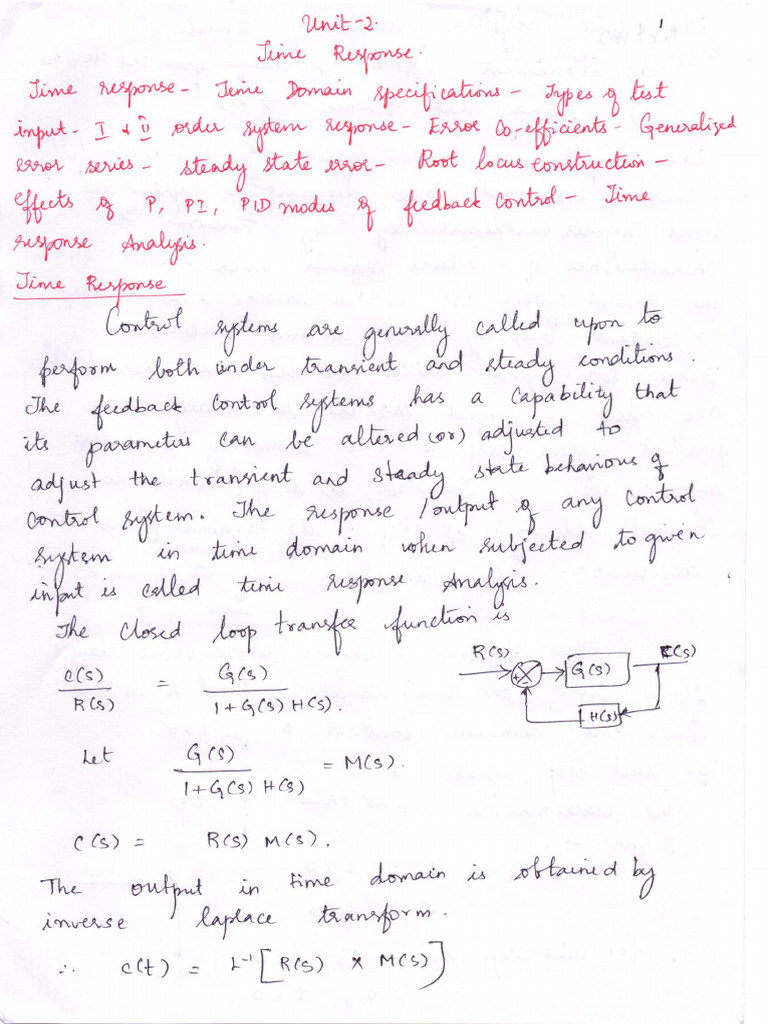 Unit-2.
1
Time Response.
Time response - Time Domain specifications - Types of test
input - I & II order system response - Error Co-efficients - Generalized
error series - steady state error - Root locus construction -
effects of P, PI, PID modes of feedback control - Time
response Analysis.
Time Response
Control systems are generally called upon to
perform both under transient and steady conditions.
The feedback control systems has a capability that
its parameters can be altered (or) adjusted to
adjust the transient and steady state behavious of
control system. The response /output of any control
system in time domain when subjected to given
input is called time response Analysis.
The closed loop transfer function is
C(s)/R(s) = G(s)/1+G(s) H(s).
R(s) + - G(s) C(s)
H(s)
Let G(s)/1+G(s) H(s) = M(s).
C(s) = R(s) M(s).
The output in time domain is obtained by
inverse laplace transform.
∴ c(t) = L⁻¹[R(s) × M(s)]